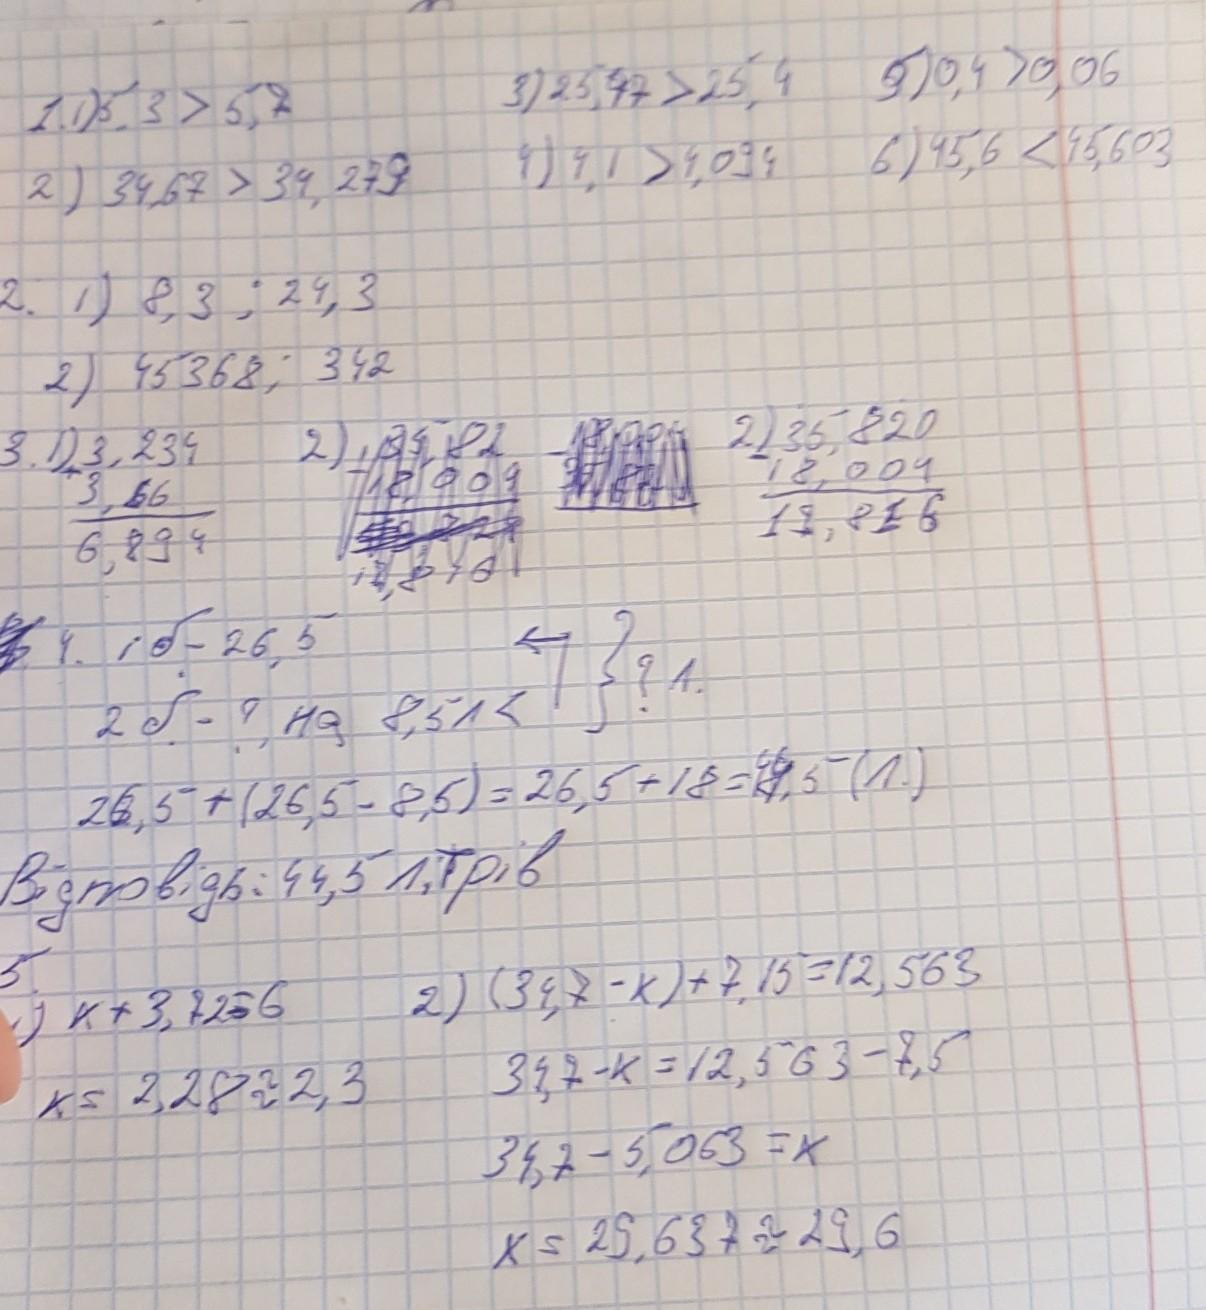 1.1)5,3 > 5,7 3)25,47 > 25,4 5)0,4 > 0,06
2) 34,67 > 34,279 4) 4,1 > 4,094 6) 45,6 < 45,603
2. 1) 8,3 ; 24,3
2) 45368; 342
3. 1) 3,234 2) 35,82 2) 35,820
+ 3,66 - 18,004 - 18,004
6,894 17,816
4. 1 б - 26,5 ? л.
2 б - ?, на 8,5 л <
26,5 + (26,5 - 8,5) = 26,5 + 18 = 44,5 (л.)
Відповідь: 44,5 літрів
5.
1) x + 3,72 = 6 2) (34,7 - x) + 7,15 = 12,563
x = 2,28 ≈ 2,3 34,7 - x = 12,563 - 7,5
34,7 - 5,063 = x
x = 29,637 ≈ 29,6